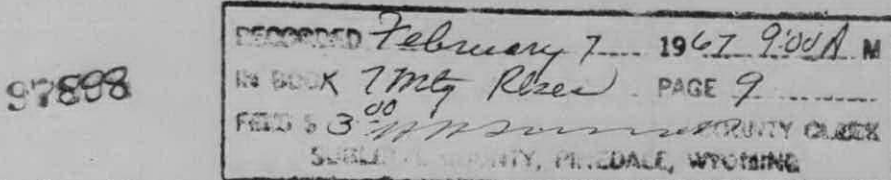 97898
RECORDED February 7 1967 9:00 A M
IN BOOK 7 Mtg Rlses PAGE 9
FEES $ 3 00 COUNTY CLERK
SUBLETTE COUNTY, PINEDALE, WYOMING